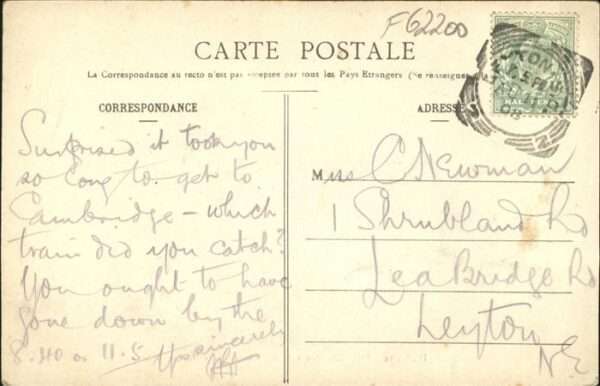 F62200
CARTE POSTALE
La Correspondance au recto n'est pas acceptée par tous les Pays Etrangers (Se renseigner
CORRESPONDANCE
ADRESSE
HALFPENNY
Surprised it took you
so long to get to
Cambridge - which
train did you catch?
You ought to have
gone down by the
8.40 or 11.5 Yrs sincerely
HH
Miss C Newman
1 Shrubland Rd
Lea Bridge Rd
Leyton
N.E